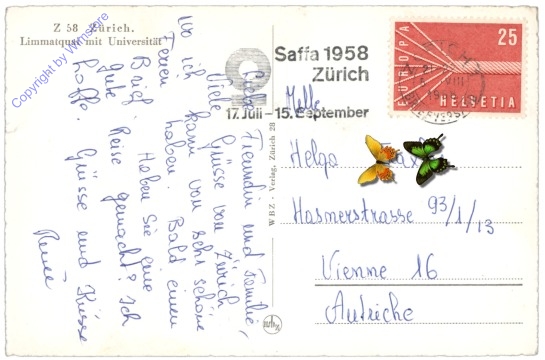 Z 58 Zürich.
Limmatquai mit Universität
Copyright by Wimstore
Liebe Freundin und Familie,
Viele Grüsse von Zürich
wo ich kann von sehr schöne
Ferien haben. Bald einen
Brief. Haben Sie eine
gute Reise gemacht? Ich
hoffe. Grüsse und Küsse
Renée
WBZ - Verlag, Zürich 28
Saffa 1958
Zürich
17. Juli - 15. September
EUROPA
25
HELVETIA
Melle
Helga
Hasnerstrasse 93/1/13
Vienne 16
Autriche